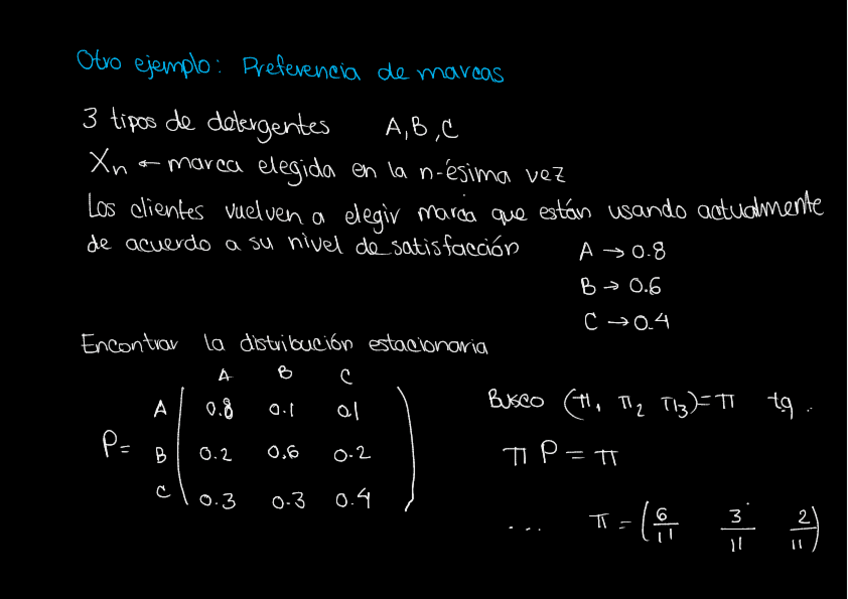 Otro ejemplo: Preferencia de marcas
3 tipos de detergentes A, B, C
Xn ← marca elegida en la n-ésima vez
Los clientes vuelven a elegir marca que están usando actualmente
de acuerdo a su nivel de satisfacción
A → 0.8
B → 0.6
C → 0.4
Encontrar la distribución estacionaria
A B C
A 0.8 0.1 0.1
P= B 0.2 0.6 0.2
C 0.3 0.3 0.4
Busco (π1 π2 π3)=π tq.
π P = π
... π = (6/11 3/11 2/11)